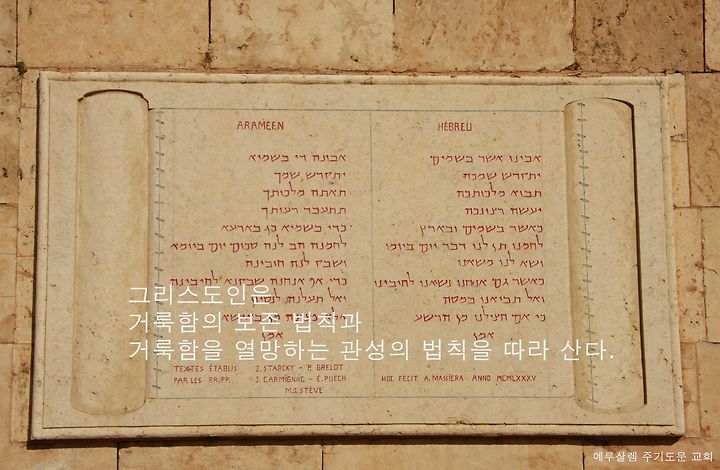 ARAMEEN
אבונה די בשמיא
יתקדש שמך
תאתה מלכותך
תתעבד רעותך
כדי בשמיא כן בארעא
לחמנה הב לנה סכום יום ביומא
ושבק לנה חובינה
כדי אף אנחנה שבקנא לחיבינה
ואל תעלנה
מן
אמן
HÉBREU
אבינו אשר בשמים
יתקדש שמכה
תבוא מלכותכה
יעשה רצונכה
כאשר בשמים ובארץ
לחמנו תן לנו דבר יום ביומו
ושא לנו משאתנו
כאשר גם אנחנו נשאנו לחיבינו
ואל תביאנו במסה
כי אם הצילנו מן הרשע
אמן
그리스도인은
거룩함의 보존 법칙과
거룩함을 열망하는 관성의 법칙을 따라 산다.
TEXTES ÉTABLIS J. STARCKY - P. GRELOT
PAR LES RR.PP. J. CARMIGNAC - É. PUECH
M.J. STÈVE
HOC FECIT A. MASSIERA ANNO MCMLXXXV
예루살렘 주기도문 교회